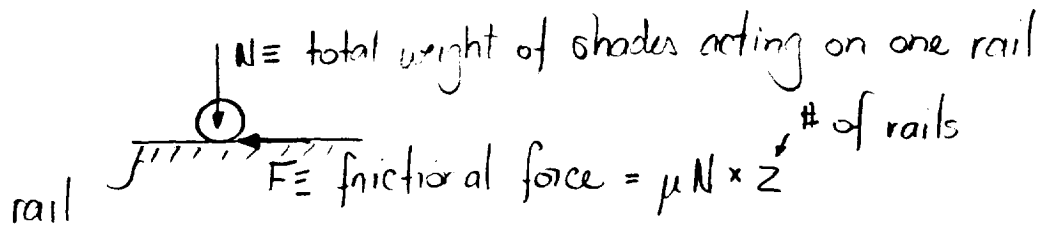 N ≡ total weight of shades acting on one rail
# of rails
F ≡ frictional force = μN × 2
rail